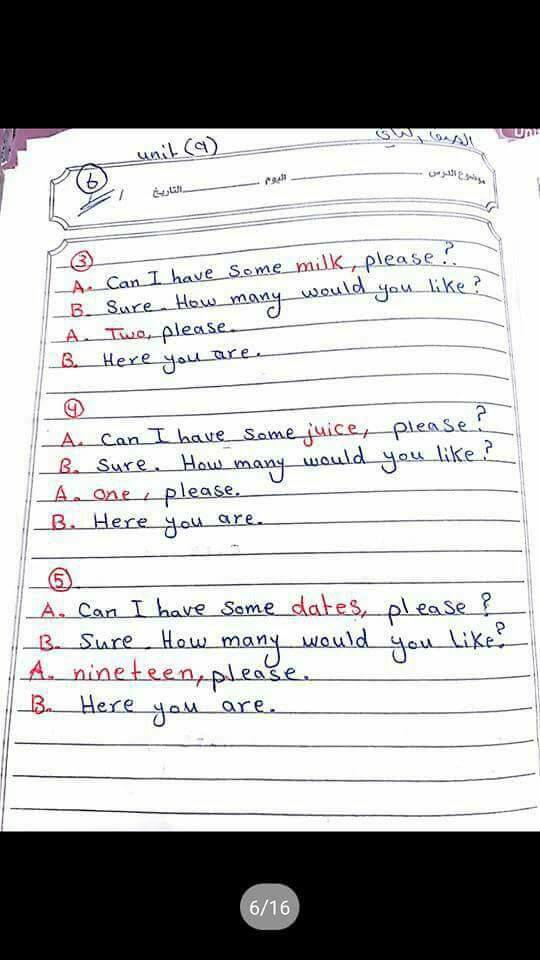 unit (9)
6
موضوع الدرس اليوم التاريخ /
3
A. Can I have some milk, please?
B. Sure. How many would you like?
A. Two, please.
B. Here you are.
4
A. Can I have some juice, please?
B. Sure. How many would you like?
A. one, please.
B. Here you are.
5
A. Can I have some dates, please?
B. Sure. How many would you like?
A. nineteen, please.
B. Here you are.
6/16